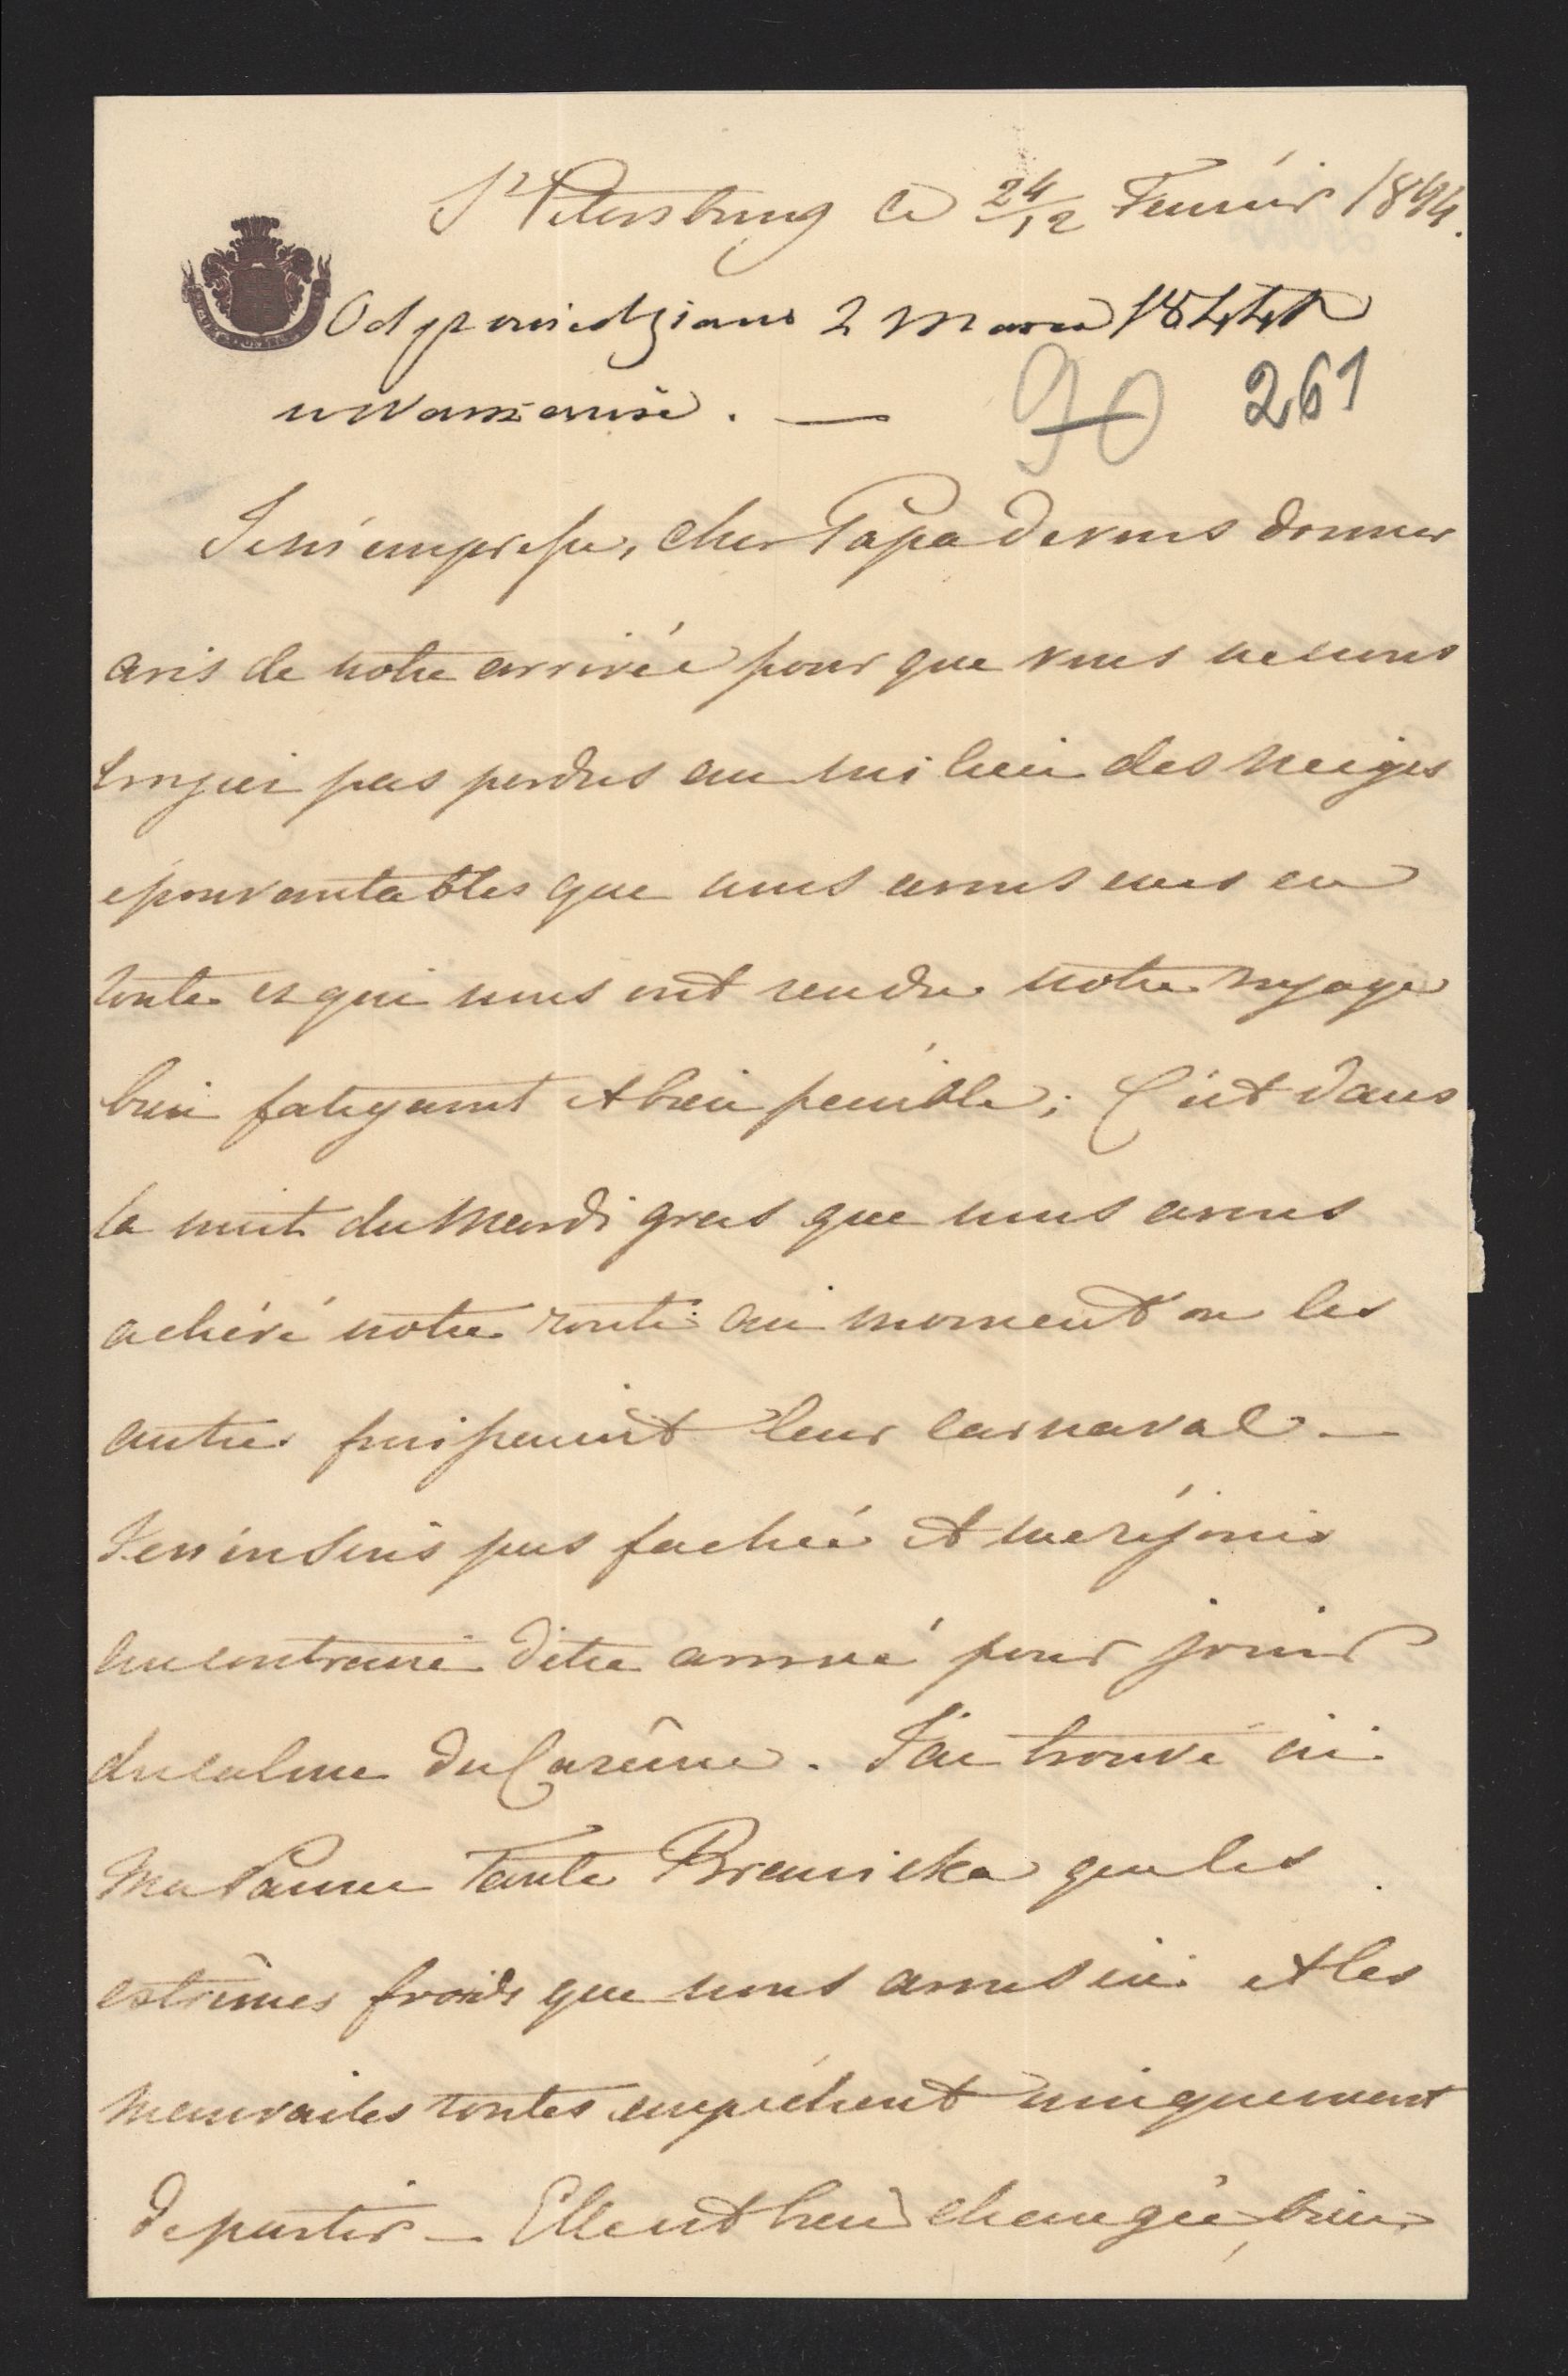 St Petersburg ce 24/12 Fevrier 1844.
Odpowiedziano 2 Marca 1844 r
w Warszawie. —
90 261
Je m'empresse, cher Papa de vous donner
avis de notre arrivée pour que vous ne nous
croyiez pas perdus au milieu des neiges
épouvantables que nous avons eues en
route et qui nous ont rendu notre voyage
bien fatigant et bien penible; C'est dans
la nuit du Mardi gras que nous avons
achévé notre route au moment ou les
autres finissaient leur carnaval —
Je n'en suis pas fachée et me réjouis
au contraire d'être arrivé pour jouir
du calme du Carême. J'ai trouvé ici
Ma Pauvre Tante Branicka que les
extrêmes froids que nous avons ici et les
mauvaises routes empéchent uniquement
de partir — Elle est bien changée, bien